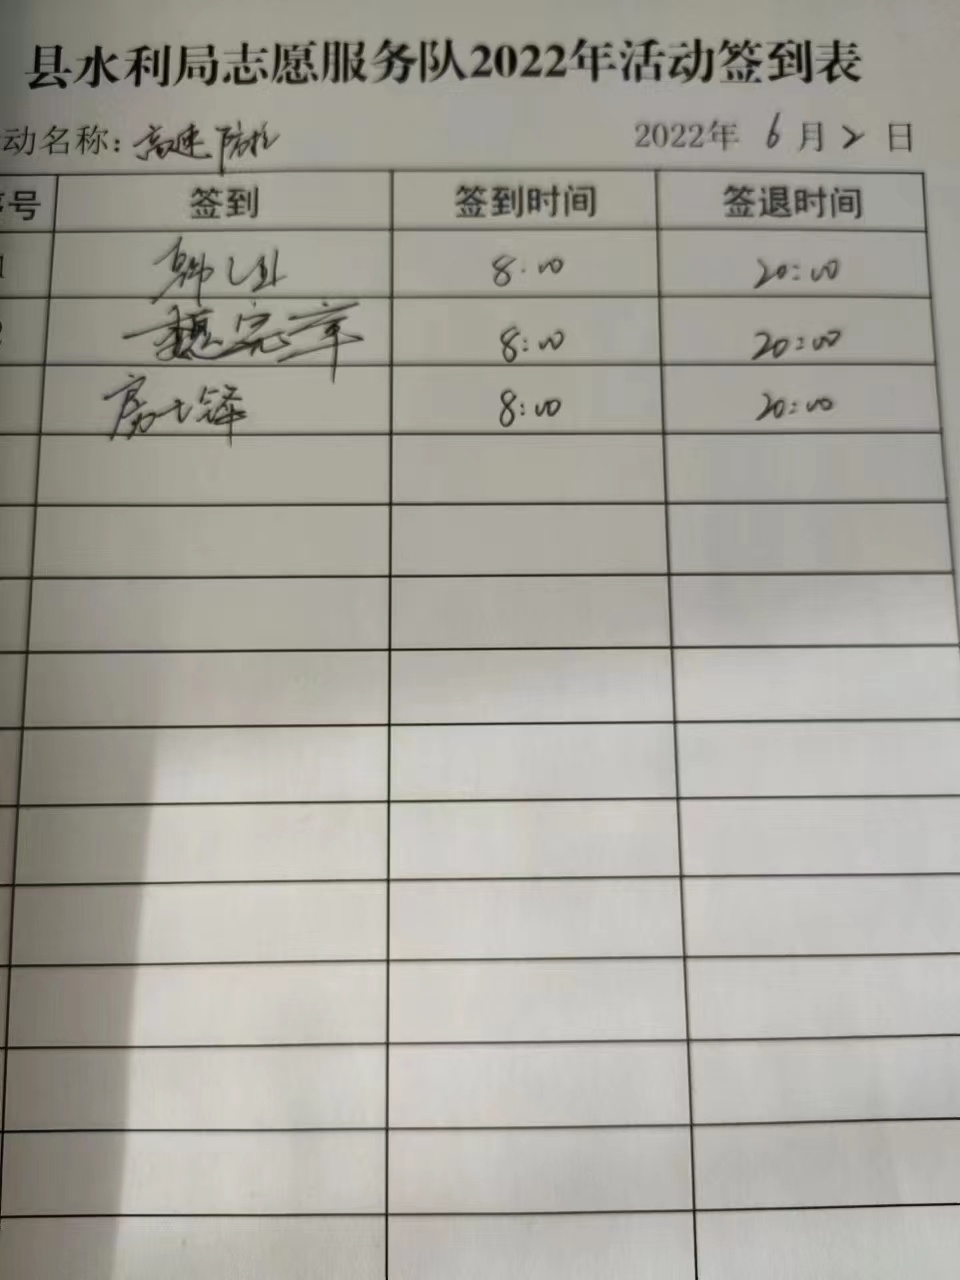 县水利局志愿服务队2022年活动签到表
动名称:高速防控 2022年 6月2日
序号 签到 签到时间 签退时间
1 8:00 20:00
2 魏宗幸 8:00 20:00
房士铎 8:00 20:00